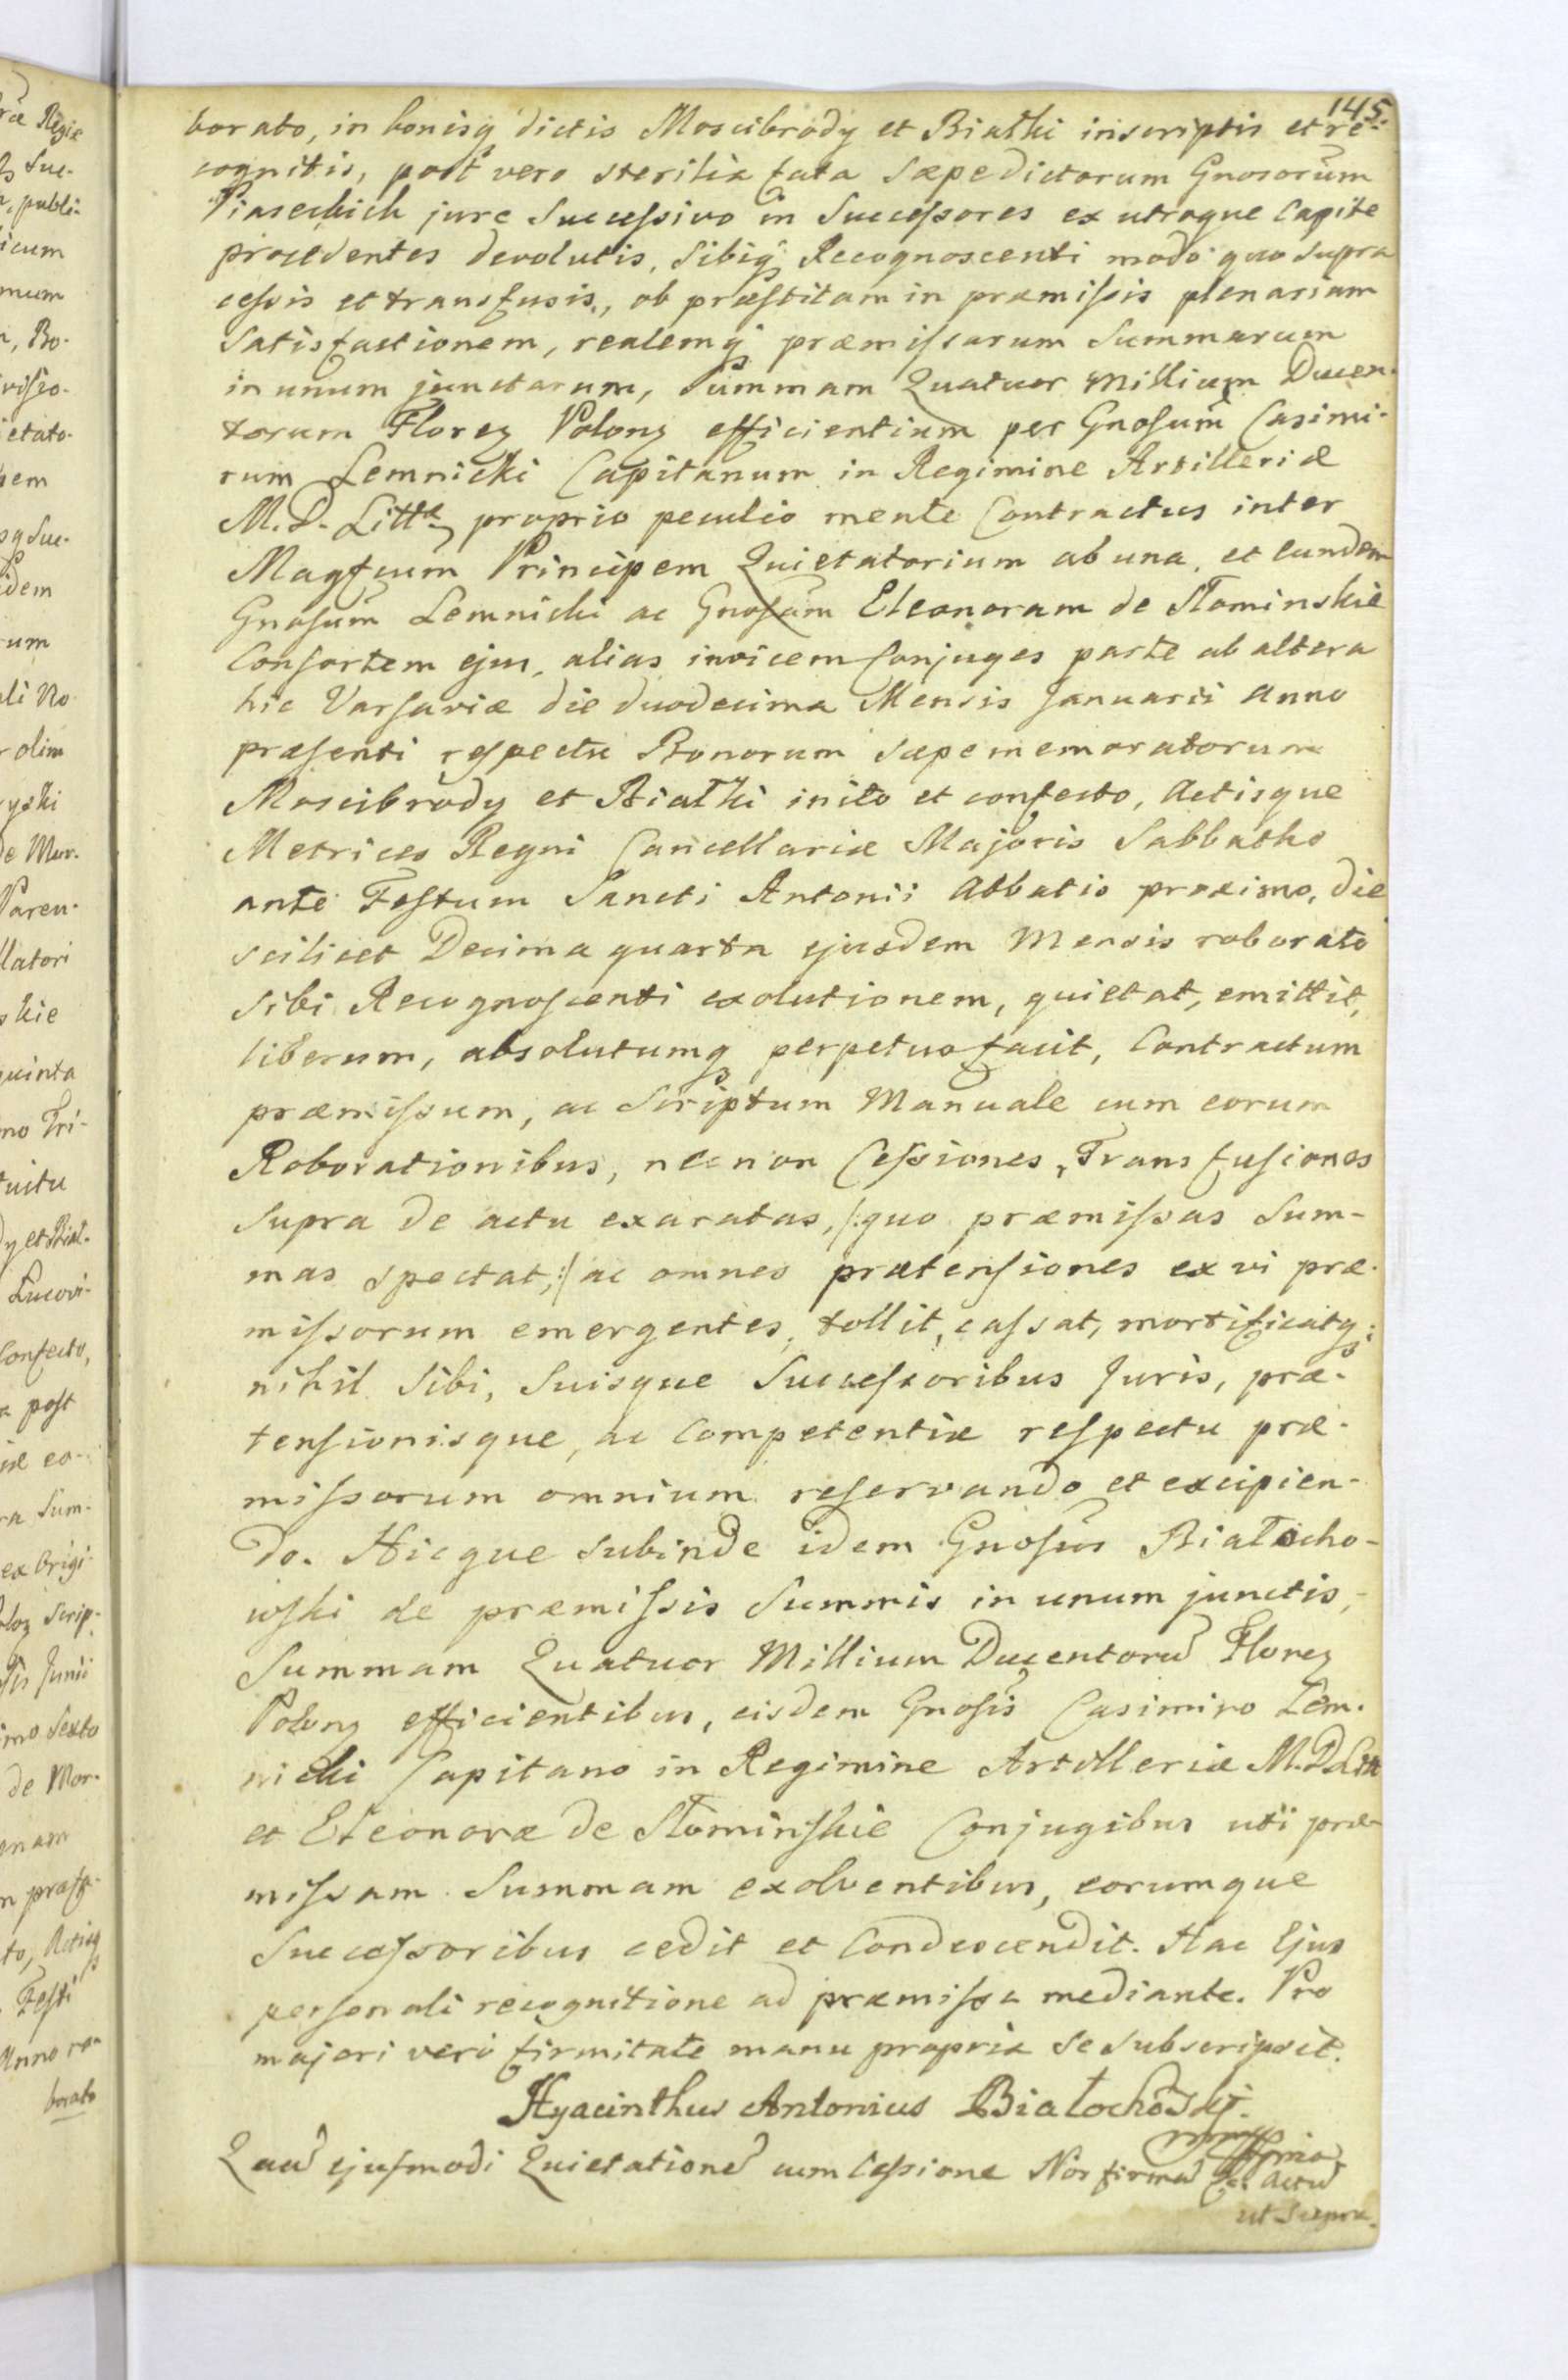 145.
borato, in bonisq dictis Moscibrody et Białki inscriptis et re-
cognitis, post vero sterilia fata sæpedictorum Gnosorum
Piaseckich jure Successivo in Successores ex utroque Capite
procedentes devolutis, Sibiq Recognoscenti modo quo supra
cessis et transfusis, ob præstitam in præmissis plenariam
Satisfactionem, realemq præmissarum Summarum
in unum junctarum, Summam Quatuor Millium Ducen-
torum Floreg Polong efficientium per Gnosum Casimi-
rum Lemnicki Capitanum in Regimine Artilleriæ
M. D. Littæ, proprio peculio mente Contractus inter
Magfcum Principem Quietatorium ab una, et eundem
Gnosum Lemnicki ac Gnosam Eleonoram de Słominskie
Consortem ejus, alias invicem Conjuges parte ab altera
hic Varsaviæ die duodecima Mensis Januarii Anno
præsenti respectu Bonorum sæpememoratorum
Moscibrody et Białki inito et confecto, Actisque
Metrices Regni Cancellariæ Majoris Sabbatho
ante Festum Sancti Antonii Abbatis proximo, die
scilicet Decima quarta ejusdem Mensis roborato
sibi Recognoscenti exolutionem, quietat, emittit,
liberum, absolutumq perpetuo facit, Contractum
præmissum, ac Scriptum Manuale cum eorum
Roborationibus, nec non Cessiones, Transfusiones
supra de actu exaratas, /:quo præmissas Sum-
mas spectat;:/ ac omnes prætensiones ex vi præ-
missorum emergentes, tollit, cassat, mortificatq;
nihil Sibi, Suisque Successoribus Juris, præ-
tensionisque, ac Competentiæ respectu præ-
missorum omnium reservando et excipien-
do. Hicque subinde idem Gnosus Białocho-
wski de præmissis Summis in unum junctis,
Summam Quatuor Millium Ducentorū Floreg
Polong efficientibus, eisdem Gnosis Casimiro Lem-
nicki Capitano in Regimine Artilleriæ M. D. Litt
et Eleonoræ de Słominskie Conjugibus uti præ-
missam Summam exolventibus, eorumque
Successoribus cedit et Condescendit. Hac Ejus
personali recognitione ad præmissa mediante. Pro
majori vero firmitate manu propria se subscripsit.
Hyacinthus Antonius Białochowski
Quā ejusmodi Quietationē cum Cessione Nos firmā actū
ut Supra.